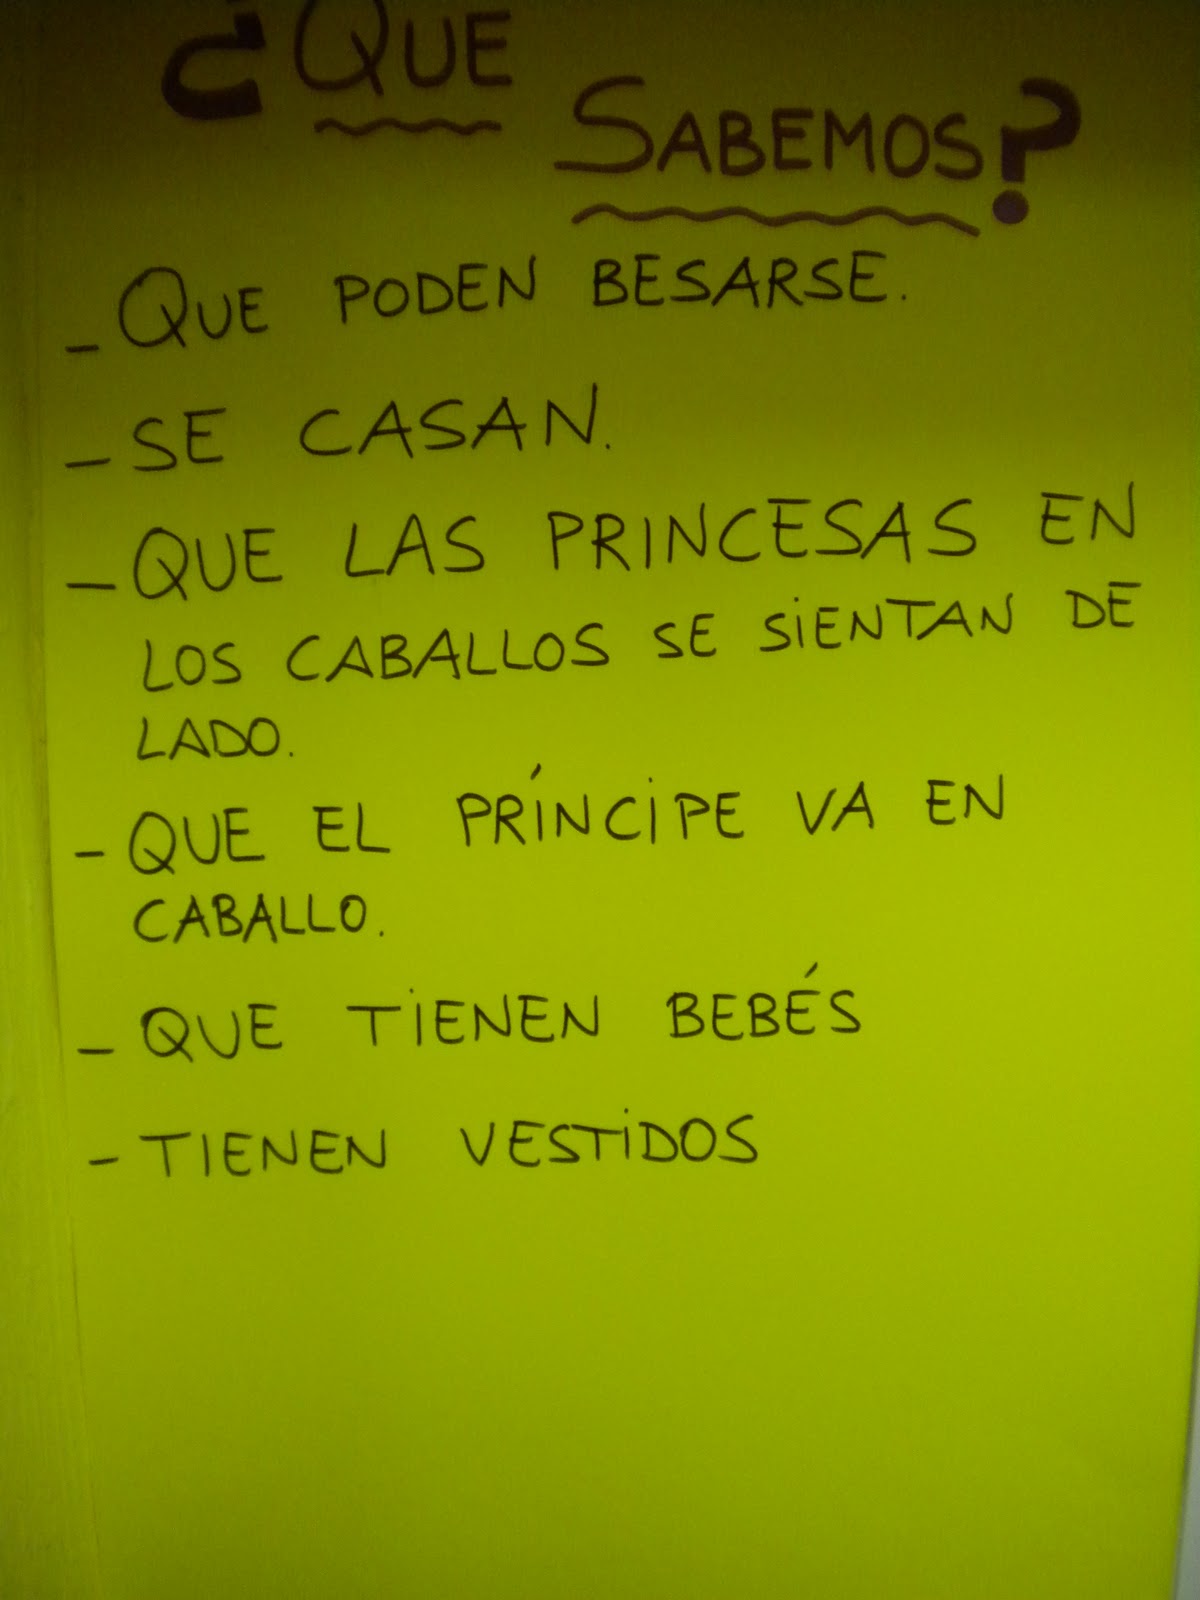 ¿QUE
SABEMOS?
- QUE PODEN BESARSE.
- SE CASAN.
- QUE LAS PRINCESAS EN
LOS CABALLOS SE SIENTAN DE
LADO.
- QUE EL PRÍNCIPE VA EN
CABALLO.
- QUE TIENEN BEBÉS
- TIENEN VESTIDOS